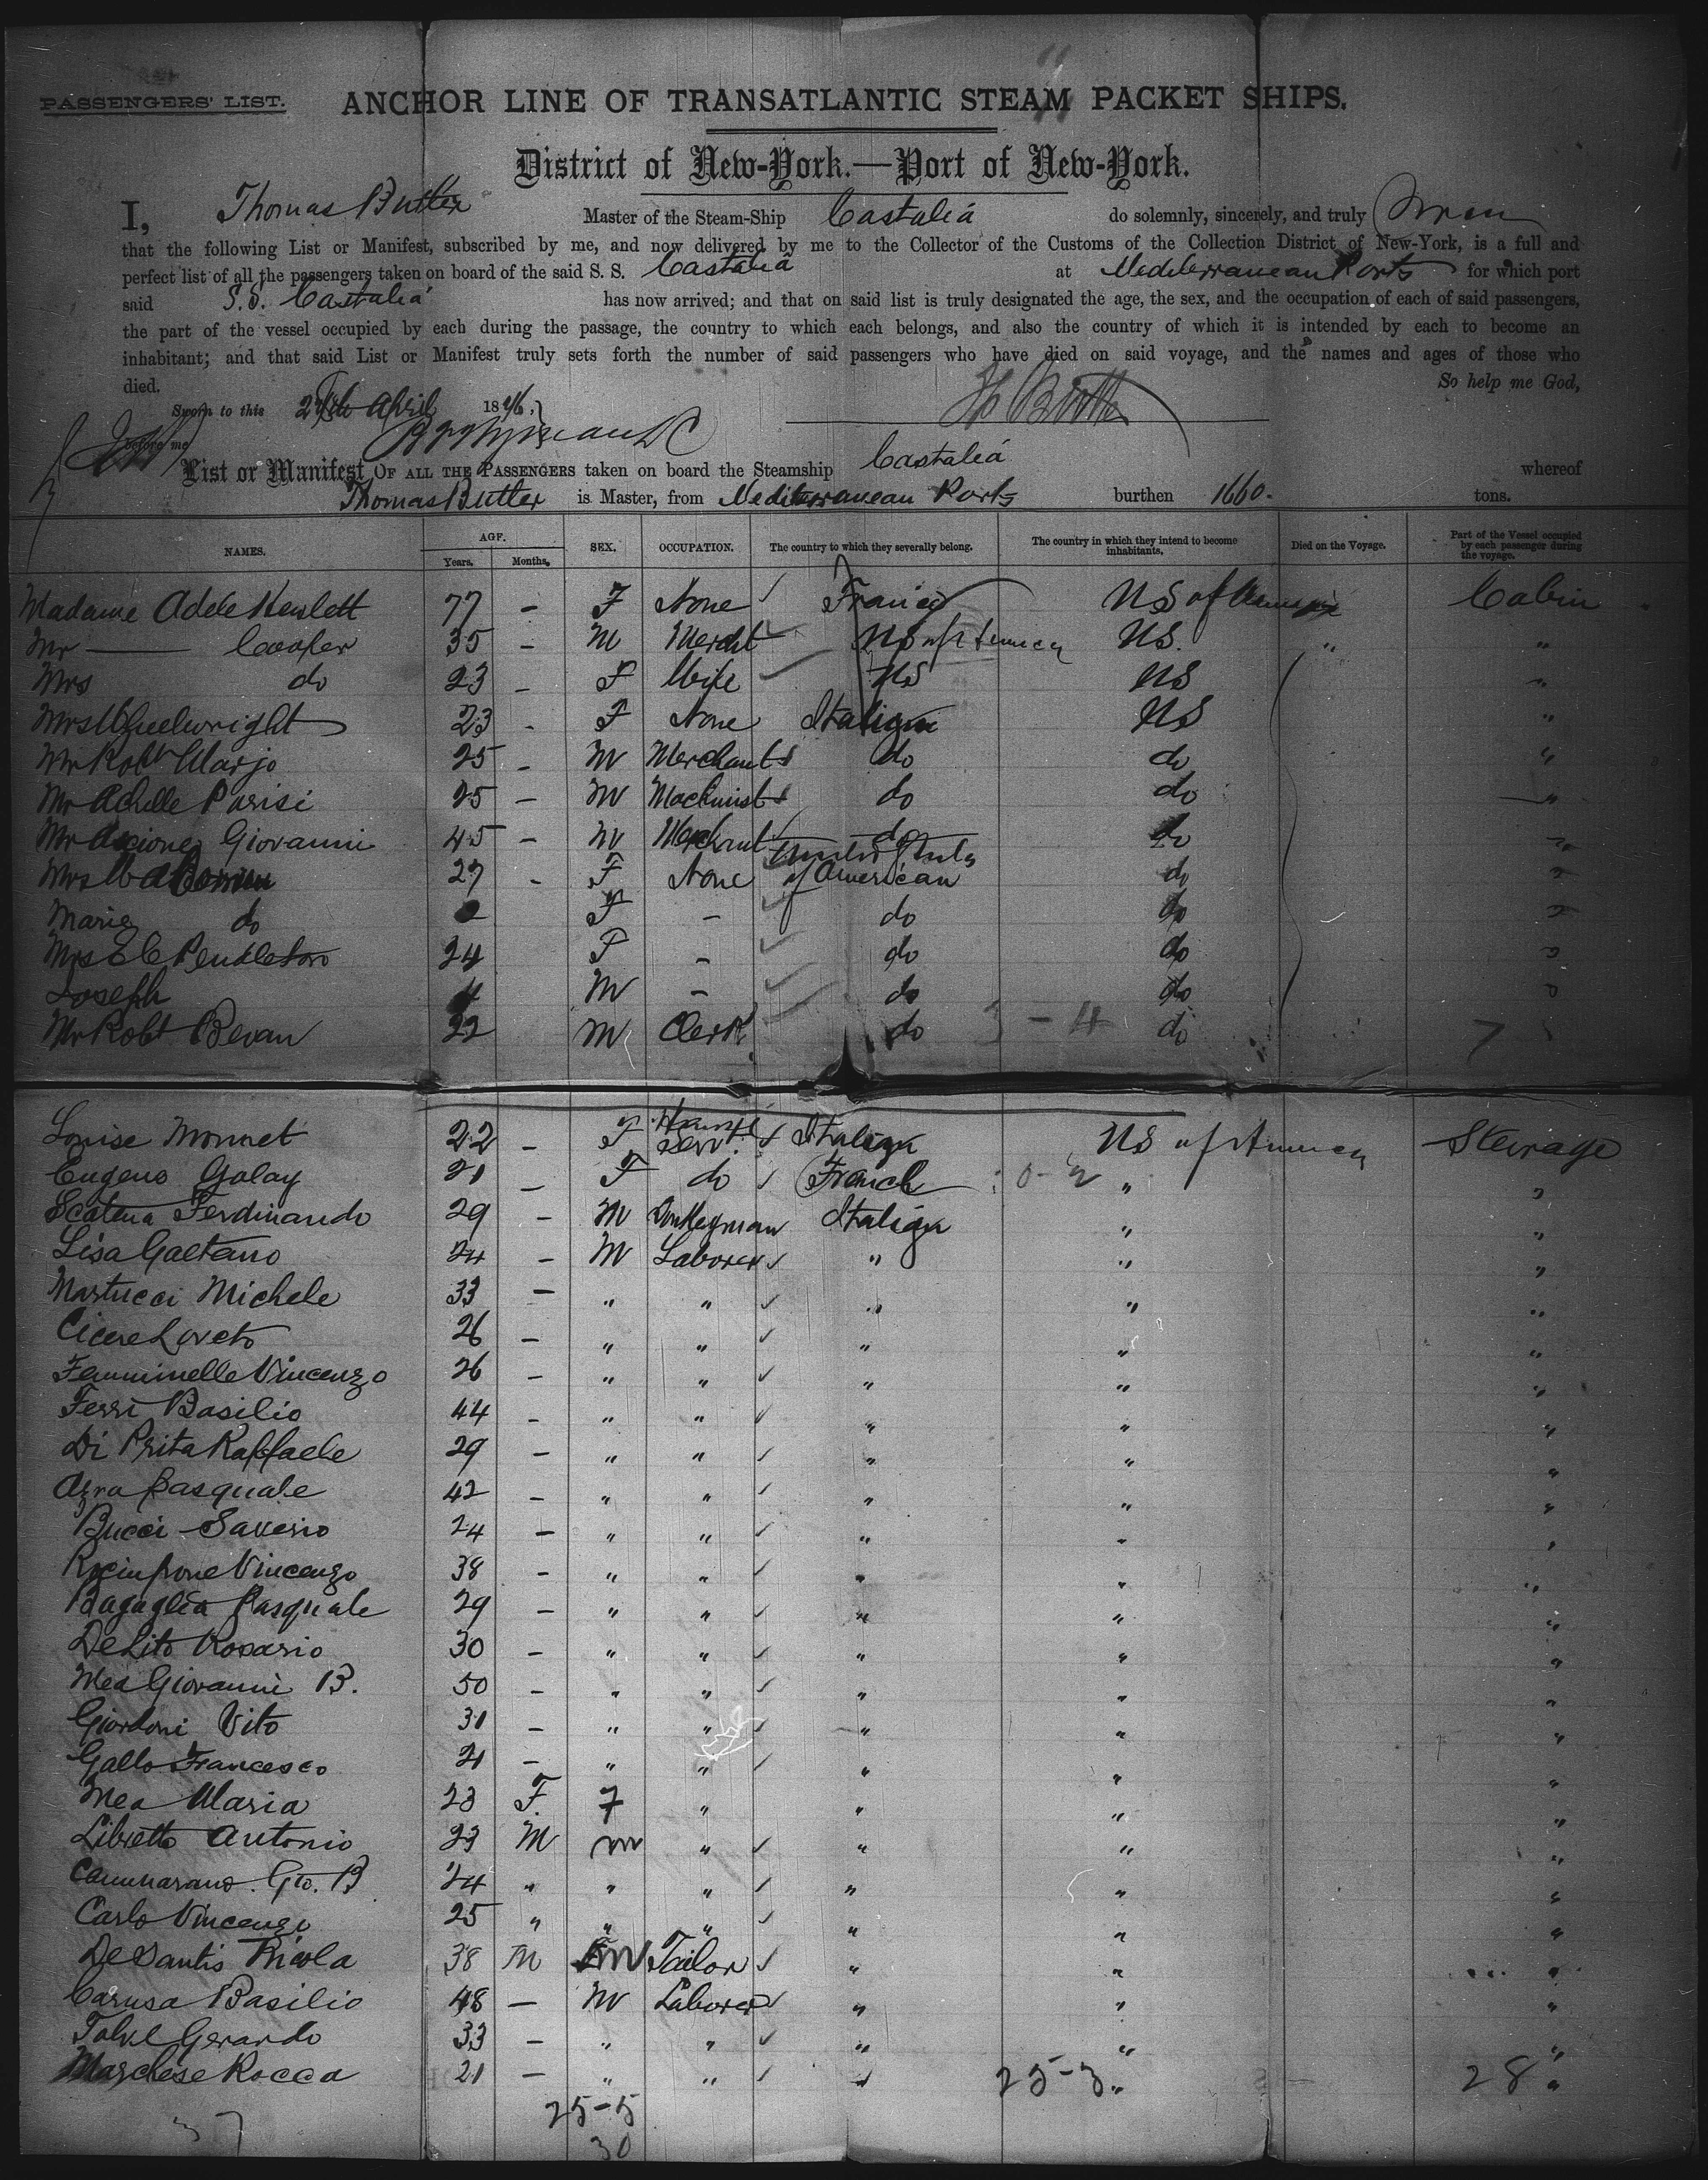 PASSENGERS' LIST.
ANCHOR LINE OF TRANSATLANTIC STEAM PACKET SHIPS.
District of New-York.—Port of New-York.
I, Thomas Butler Master of the Steam-Ship Castalia do solemnly, sincerely, and truly
that the following List or Manifest, subscribed by me, and now delivered by me to the Collector of the Customs of the Collection District of New-York, is a full and
perfect list of all the passengers taken on board of the said S. S. Castalia at Mediterranean Ports for which port
said S.S. Castalia has now arrived; and that on said list is truly designated the age, the sex, and the occupation of each of said passengers,
the part of the vessel occupied by each during the passage, the country to which each belongs, and also the country of which it is intended by each to become an
inhabitant; and that said List or Manifest truly sets forth the number of said passengers who have died on said voyage, and the names and ages of those who
died. So help me God,
Sworn to this April 18
before me
List or Manifest OF ALL THE PASSENGERS taken on board the Steamship Castalia whereof
Thomas Butler is Master, from Mediterranean Ports burthen 1660. tons.
NAMES. AGE. Years. Months. SEX. OCCUPATION. The country to which they severally belong. The country in which they intend to become inhabitants. Died on the Voyage. Part of the Vessel occupied by each passenger during the voyage.
Madame Adele Hewlett 77 — F None France US of America Cabin
Mr —— Cooper 35 — M Mercht US of America US. " "
Mrs do 23 — F Wife US US "
Mrs Wheelwright 23 - F None Italian US "
Mr Robt Warjo 25 - M Merchant do do "
Mr Achille Parisi 25 — M Machinist do do "
Mr Giovanni 45 — M Merchant do do "
Mrs 27 - F None United States of American do "
Marie do F - do do "
Mrs E C Pendleton 24 F - do do "
Joseph 4 M - do do "
Mr Robt Bevan 22 M Clerk do 3 - 4 do 7
Louise Monnet 22 — F serv. Italian US of America Steerage
Eugenο Golay 21 — F do French 0-2 " "
Scatena Ferdinando 29 — M Donkeyman Italian " "
Lisa Gaetano 24 — M Laborer " " "
Martucci Michele 33 — " " " " "
Cicere Loreto 26 — " " " " "
Femminelle Vincenzo 26 — " " " " "
Ferri Basilio 44 — " " " " "
Di Prita Raffaele 29 — " " " " "
Azra Pasquale 42 — " " " " "
Bucci Saverio 24 — " " " " "
Vincenzo 38 — " " " " "
Bagaglia Pasquale 29 — " " " " "
De Lito Rosario 30 — " " " " "
Mea Giovanni B. 50 — " " " " "
Giordoni Vito 31 — " " " " "
Gallo Francesco 21 — " " " " "
Mea Maria 23 F. F " " " "
Libretto Antonio 23 M m " " " "
Cammarano Gio. B 24 " " " " " "
Carlo Vincenzo 25 " " " " " "
De Santis Nicola 38 M M Tailor " " "
Carusa Basilio 48 — M Laborer " " "
Gerardo 33 — " " " " "
Marchese Rocca 21 — " " " 25-3 " 28 "
25-5
30
37